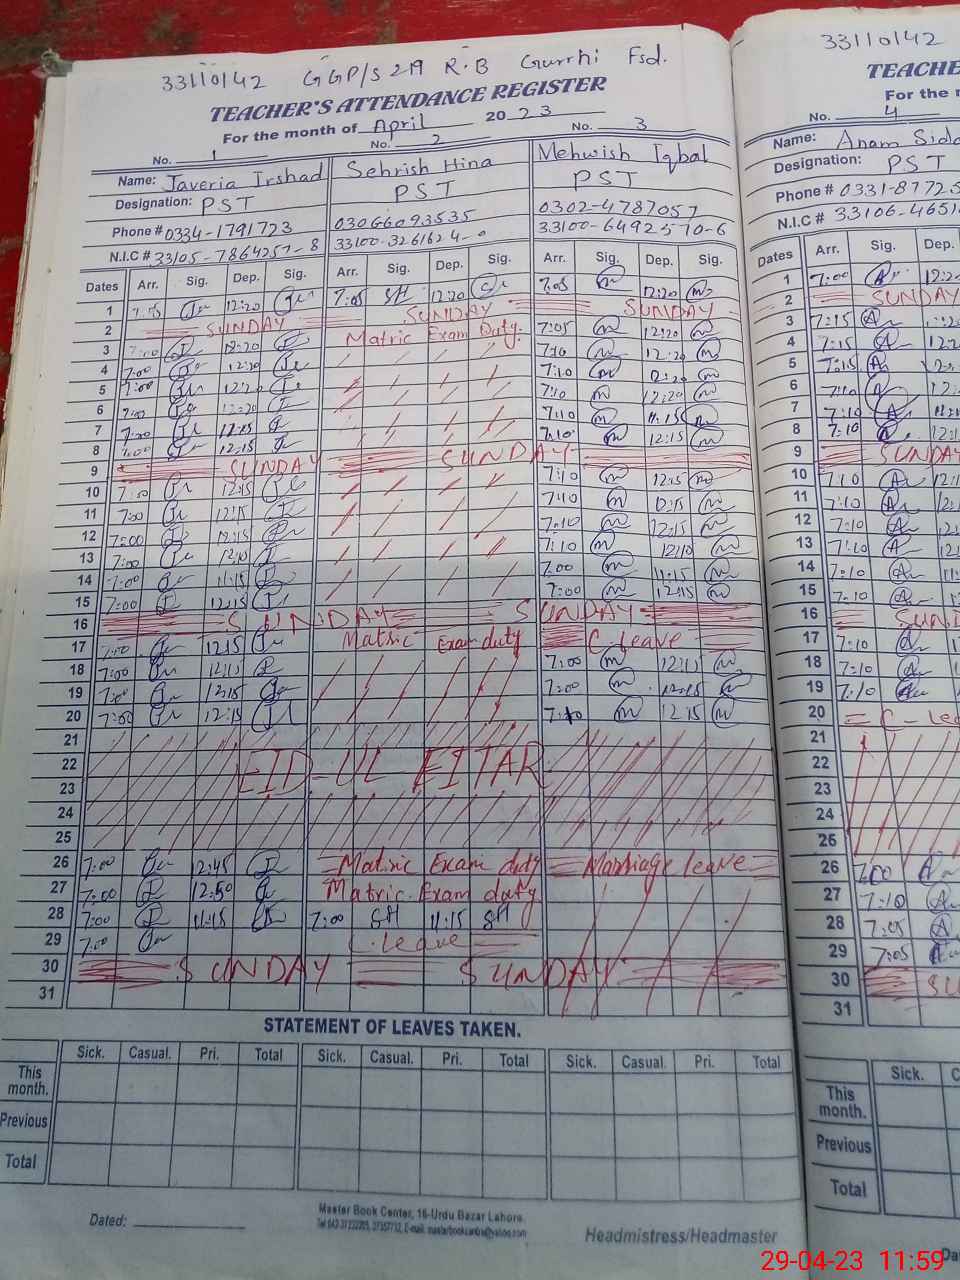 33110142 GGP/S 219 R.B Gurrhi Fsd.
TEACHER'S ATTENDANCE REGISTER
For the month of April 2023
No. 1 No. 2 No. 3
Name: Javeria Irshad Sehrish Hina Mehwish Iqbal
Designation: PST PST PST
Phone # 0334-1791723 03066093535 0302-4787057
N.I.C # 33105-7864257-8 33100-3261624-0 33100-6492570-6
Dates Arr. Sig. Dep. Sig. Arr. Sig. Dep. Sig. Arr. Sig. Dep. Sig.
1 12:20 7:05 SH 12:20 7:05 12:20
2 SUNDAY SUNDAY SUNDAY
3 7:00 12:20 Matric Exam Duty. 7:05 12:20
4 7:00 12:20 7:10 12:20
5 7:00 12:20 7:10 12:20
6 7:00 12:20 7:10 12:20
7 7:00 12:15 7:10 11:15
8 7:00 12:15 7:10 12:15
9 SUNDAY SUNDAY
10 7:00 12:15 7:10 12:15
11 7:00 12:15 7:10 12:15
12 7:00 12:15 7:10 12:15
13 7:00 12:10 7:10 12:10
14 7:00 11:15 7:00 11:15
15 7:00 12:15 7:00 12:15
16 SUNDAY SUNDAY
17 7:00 12:15 Matric Exam duty C.leave
18 7:00 12:15 7:00 12:15
19 7:00 12:15 7:00 12:15
20 7:00 12:15 7:10 12:15
21
22 EID-UL FITAR
23
24
25
26 7:00 12:45 Matric Exam duty Marriage leave
27 7:00 12:50 Matric Exam duty
28 7:00 11:15 7:00 SH 11:15 SH
29 7:00 C.leave
30 SUNDAY SUNDAY
31
STATEMENT OF LEAVES TAKEN.
Sick. Casual. Pri. Total Sick. Casual. Pri. Total Sick. Casual. Pri. Total
This month.
Previous
Total
Dated:
Master Book Center, 16-Urdu Bazar Lahore.
Headmistress/Headmaster
33110142
TEACHE
For the m
No. 4
Name: Anam Sidd
Designation: PST
Phone # 0331-87725
N.I.C # 33106-4651
Dates Arr. Sig. Dep.
1 7:00 12:20
2 SUNDAY
3 7:15
4 7:15 12:2
5 7:15
6 7:10 12:
7 7:10
8 7:10 12:1
9 SUNDAY
10 7:10 12:1
11 7:10 12:
12 7:10 12:
13 7:10 12:
14 7:10
15 7:10 12:
16 SUND
17 7:10
18 7:10
19 7:10
20 C-lea
21
22
23
24
25
26 7:00
27 7:10
28 7:05
29 7:05
30 SU
31
Sick. C
This month.
Previous
Total
Da
29-04-23 11:59